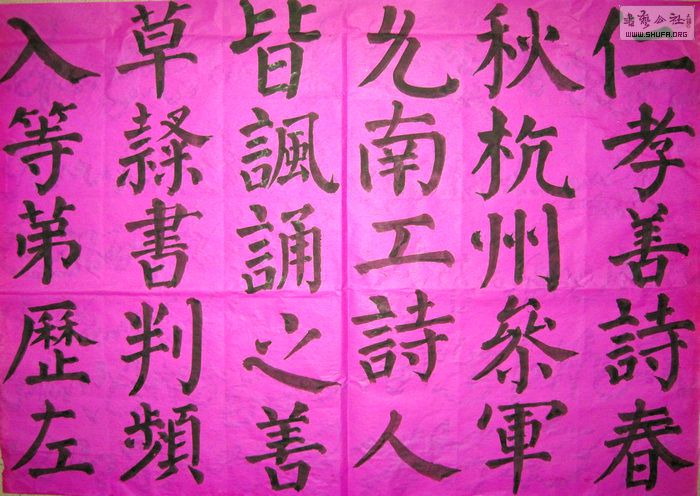 仁孝善詩春
秋杭州叅軍
允南工詩人
皆諷誦之善
草隸書判頻
入等苐歷左
WWW.SHUFA.ORG